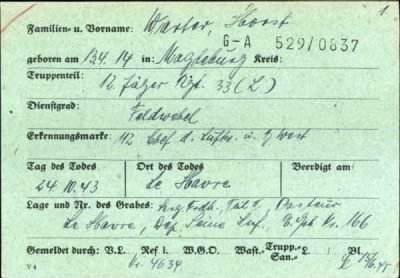 1
Familien- u. Vorname: Warter, Horst
G-A 529/0837
geboren am 13.4.14 in: Magdeburg Kreis:
Truppenteil: 12. Jäger Rgt. 33 (L)
Dienstgrad: Feldwebel
Erkennungsmarke: 112 Chef d. Luftkr. u. g West
Tag des Todes Ort des Todes Beerdigt am
24.10.43 Le Havre
Lage und Nr. des Grabes: Pasteur
Le Havre, Dep. Seine Inf., Kr. 166
Gemeldet durch: V.L. Ref. I. W.G.O. Wast.- Trupp.- San.- L. Bl.
Nr. 4634